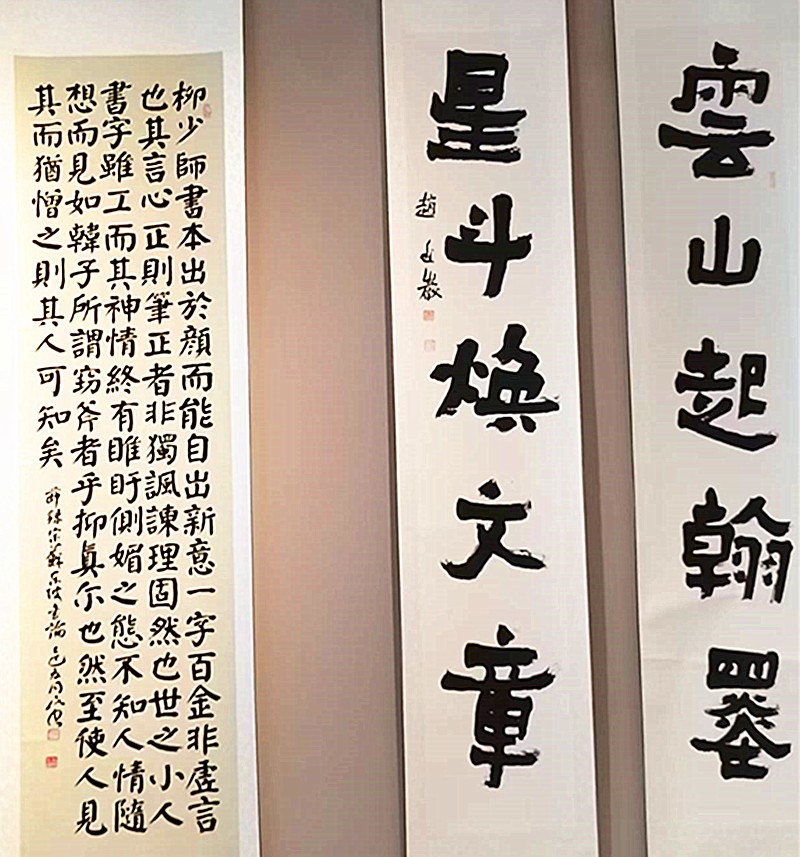 雲山起翰墨
星斗煥文章
趙
柳少師書本出於顏而能自出新意一字百金非虛言
也其言心正則筆正者非獨諷諫理固然也世之小人
書字雖工而其神情終有睢盱側媚之態不知人情隨
想而見如韓子所謂窃斧者乎抑眞尔也然至使人見
其而猶憎之則其人可知矣
宋蘇東坡書論